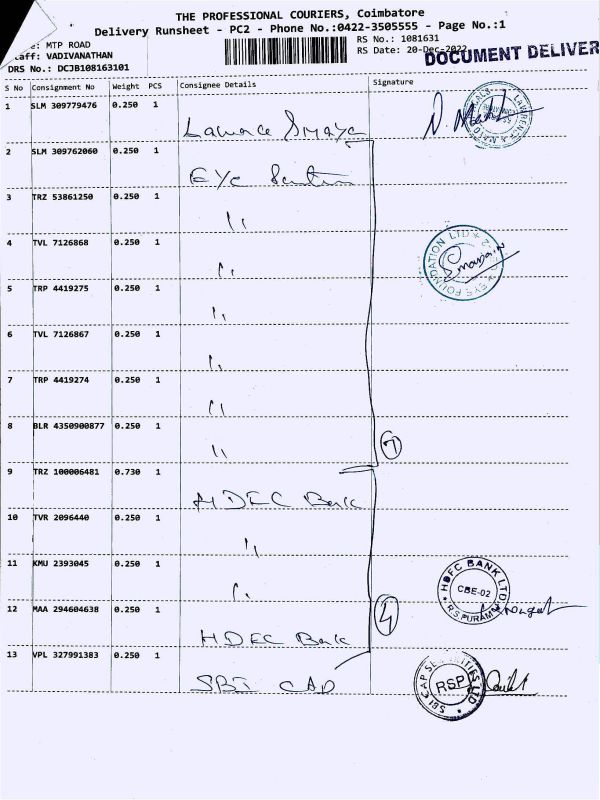 THE PROFESSIONAL COURIERS, Coimbatore
Delivery Runsheet - PC2 - Phone No.:0422-3505555 - Page No.:1
: MTP ROAD
RS No.: 1081631
taff: VADIVANATHAN
RS Date: 20-Dec-2022
DOCUMENT DELIVER
DRS No.: DCJB108163101
S No Consignment No Weight PCS Consignee Details Signature
1 SLM 309779476 0.250 1
2 SLM 309762060 0.250 1 Eye
3 TRZ 53861250 0.250 1 〃
4 TVL 7126868 0.250 1 〃
5 TRP 4419275 0.250 1 〃
6 TVL 7126867 0.250 1 〃
7 TRP 4419274 0.250 1 〃
8 BLR 4350900877 0.250 1 〃
7
9 TRZ 100006481 0.730 1 HDFC Bank
10 TVR 2096440 0.250 1 〃
11 KMU 2393045 0.250 1 〃
HDFC BANK LTD
CBE-02
R.S.PURAM
12 MAA 294604638 0.250 1 HDFC Bank
4
13 VPL 327991383 0.250 1 SBI CAP
SBI CAP SECURITIES LTD
RSP
EYE FOUNDATION LTD